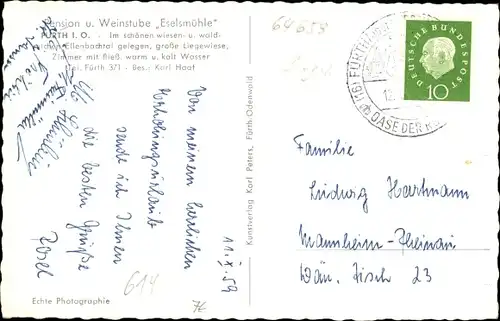 Pension u. Weinstube „Eselsmühle"
FÜRTH I. O. - Im schönen wiesen- u. wald-
Ellenbachtal gelegen, große Liegewiese,
Zimmer mit fließ. warm u. kalt Wasser
Tel. Fürth 371 - Bes.: Karl Haaf
11. X. 59
Von meinem herrlichen
Erholungsurlaub
sende ich Ihnen
die besten Grüße
Echte Photographie
614
76
Kunstverlag Karl Peters, Fürth-Odenwald
64658
(16) FÜRTH
OASE DER
DEUTSCHE BUNDESPOST
10
Familie
Ludwig Hartmann
Mannheim-Rheinau
Dän. Tisch 23